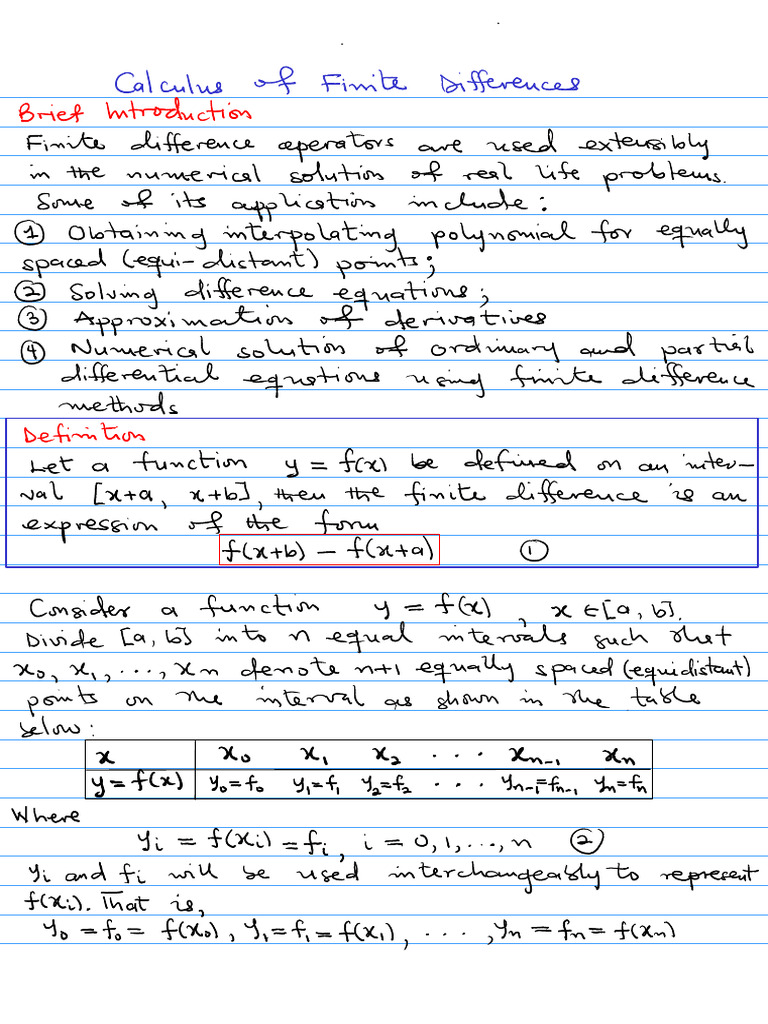 Calculus of Finite Differences
Brief Introduction
Finite difference operators are used extensibly
in the numerical solution of real life problems.
Some of its application include:
① Obtaining interpolating polynomial for equally
spaced (equi-distant) points;
② Solving difference equations;
③ Approximation of derivatives
④ Numerical solution of ordinary and partial
differential equations using finite difference
methods
Definition
Let a function y = f(x) be defined on an inter-
val [x+a, x+b], then the finite difference is an
expression of the form
f(x+b) - f(x+a) ①
Consider a function y = f(x), x ∈ [a, b].
Divide [a, b] into n equal intervals such that
x₀, x₁, ..., xn denote n+1 equally spaced (equidistant)
points on the interval as shown in the table
below:
x x₀ x₁ x₂ ... xn-1 xn
y = f(x) y₀=f₀ y₁=f₁ y₂=f₂ ... yn-1=fn-1 yn=fn
Where
yi = f(xi) = fi, i = 0, 1, ..., n ②
yi and fi will be used interchangeably to represent
f(xi). That is,
y₀ = f₀ = f(x₀), y₁ = f₁ = f(x₁), ..., yn = fn = f(xn)